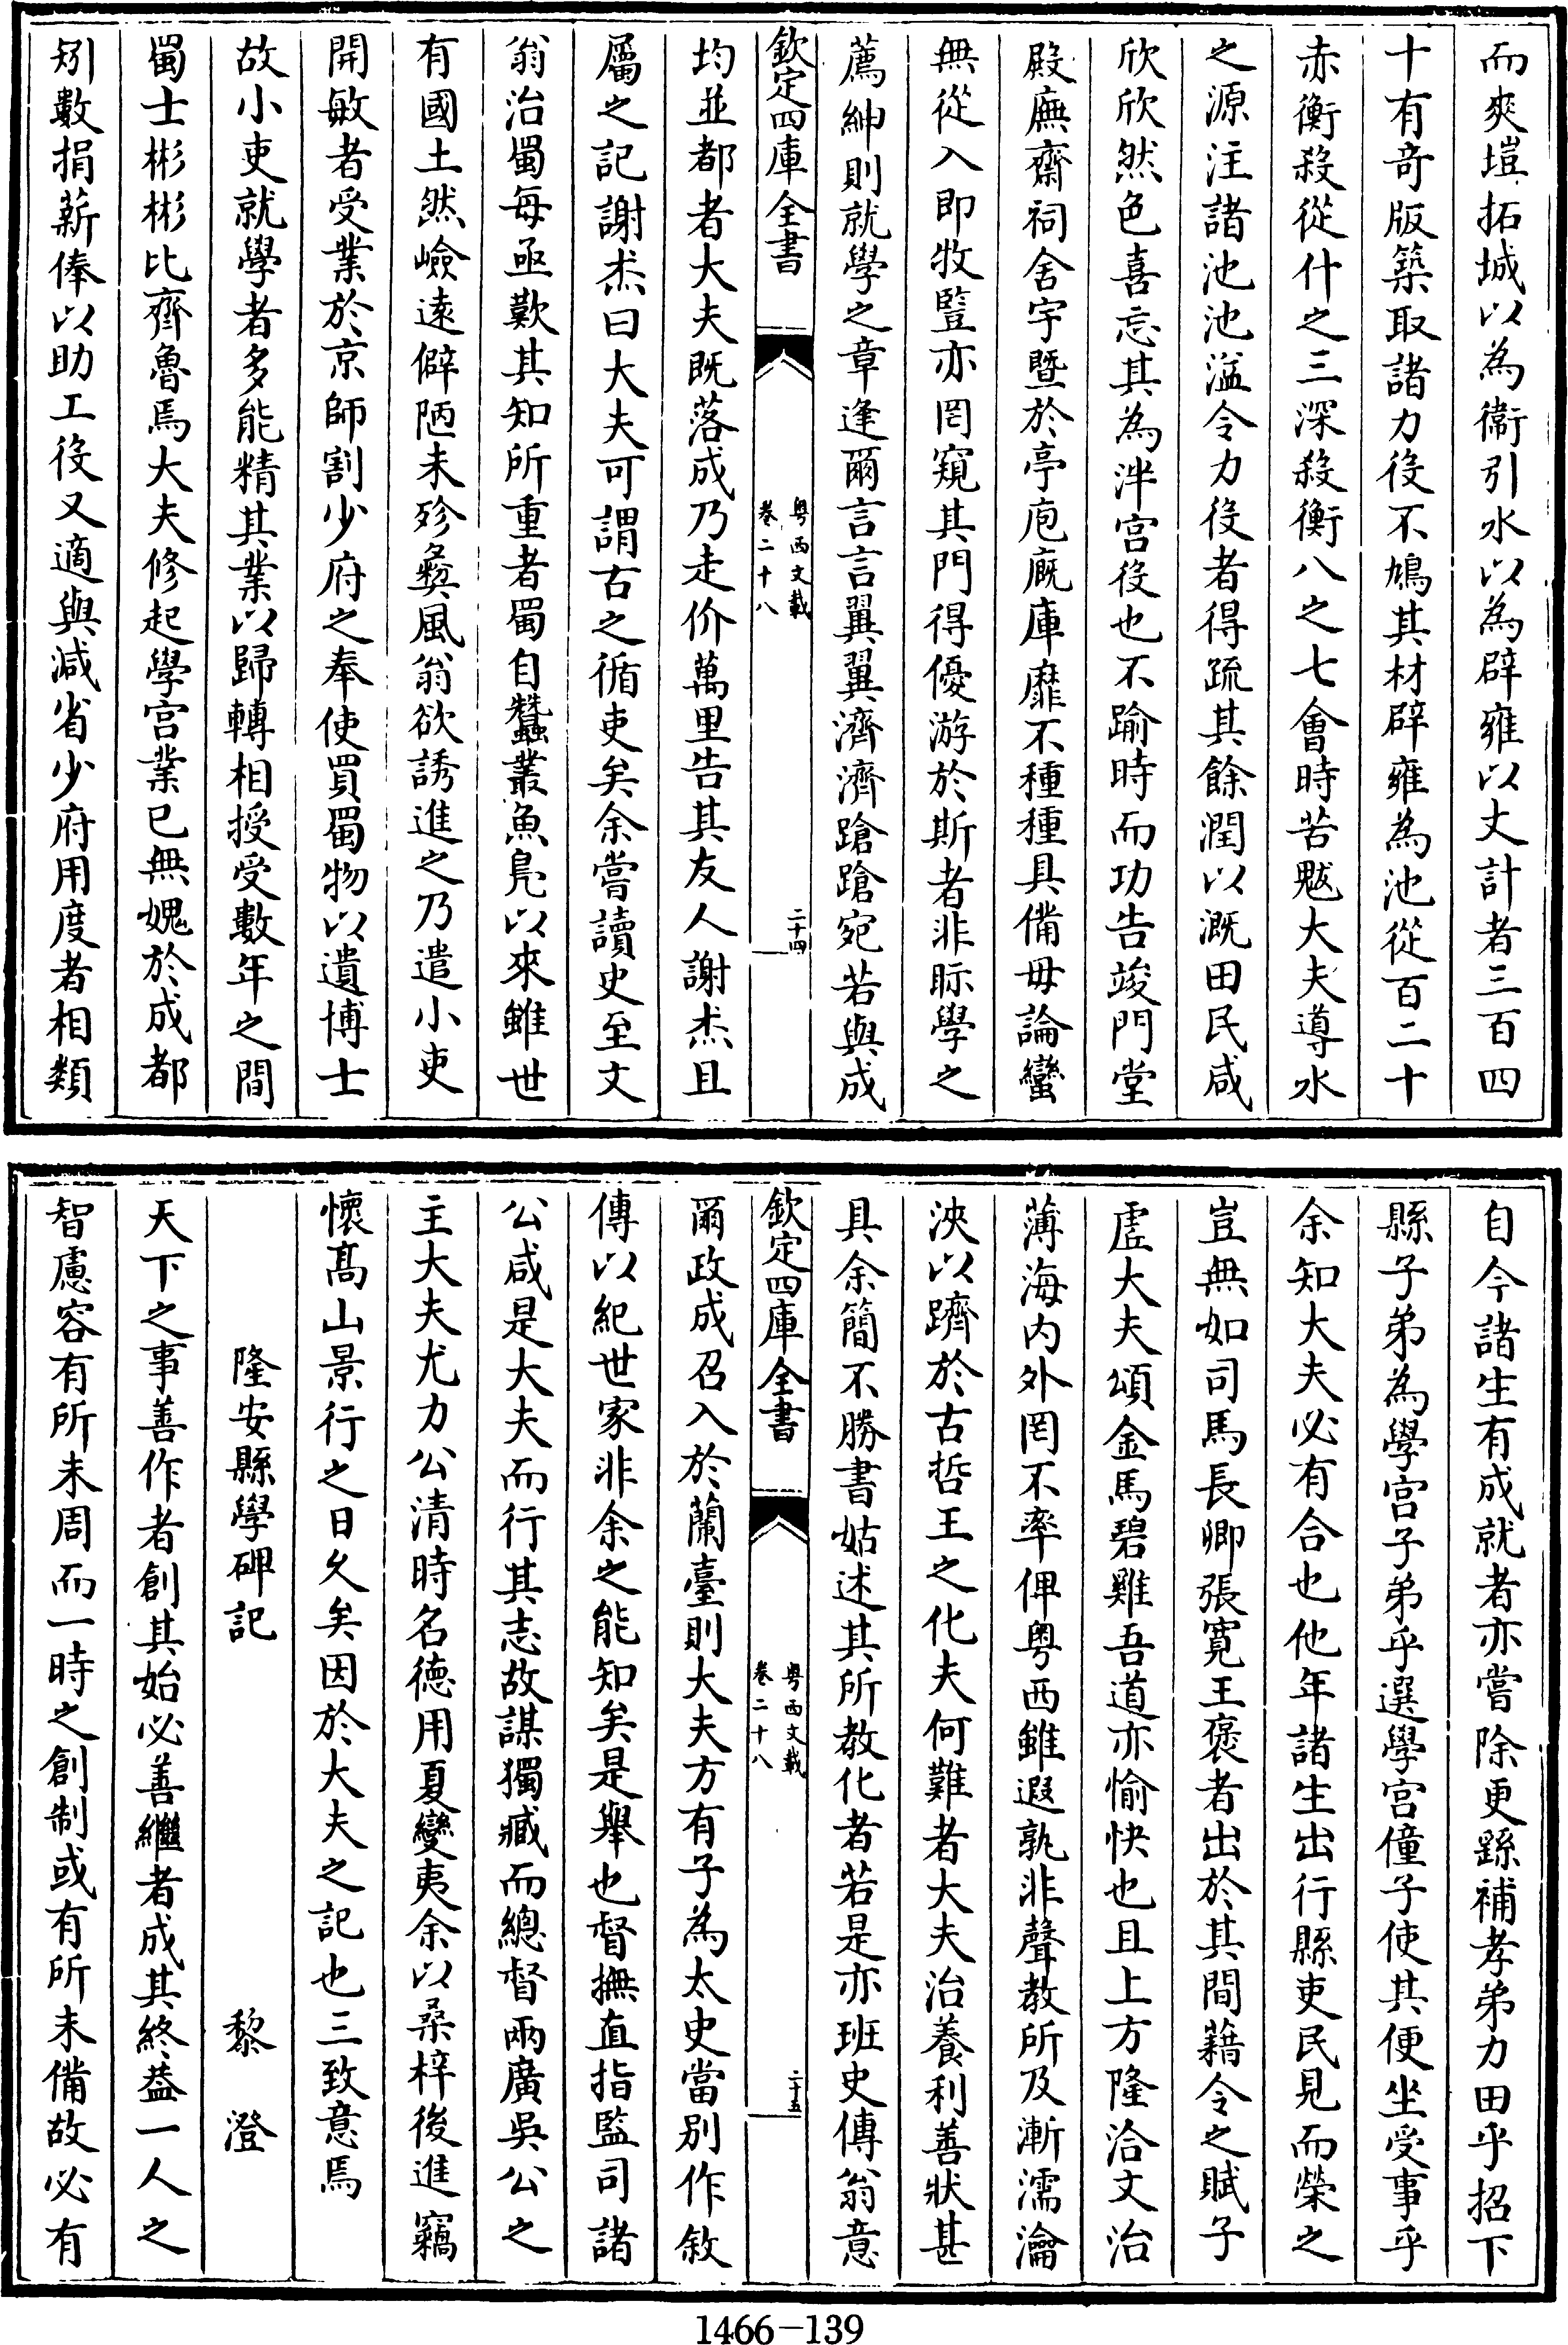 而爽塏拓城以為衞引水以為辟雍以丈計者三百四
十有奇版築取諸力役不鳩其材辟雍為池從百二十
赤衡殺從什之三深殺衡八之七會時苦魃大夫導水
之源注諸池池溢令力役者得疏其餘潤以溉田民咸
欣欣然色喜忘其為泮宫役也不踰時而功告竣門堂
殿廡齋祠舍宇暨於亭庖廐庫靡不種種具備毋論蠻
無從入即牧豎亦罔窺其門得優游於斯者非眎學之
薦紳則就學之章逢爾言言翼翼濟濟蹌蹌宛若與成
欽定四庫全書
粤西文載
卷二十八
二十四
均並都者大夫既落成乃走价萬里告其友人謝杰且
屬之記謝杰曰大夫可謂古之循吏矣余嘗讀史至文
翁治蜀每亟歎其知所重者蜀自蠶叢魚鳧以來雖世
有國土然嶮遠僻陋未殄彝風翁欲誘進之乃遣小吏
開敏者受業於京師割少府之奉使買蜀物以遺博士
故小吏就學者多能精其業以歸轉相授受數年之間
蜀士彬彬比齊魯焉大夫修起學宫業已無媿於成都
矧數捐薪俸以助工役又適與減省少府用度者相類
自今諸生有成就者亦嘗除更繇補孝弟力田乎招下
縣子弟為學宫子弟乎選學宫僮子使其便坐受事乎
余知大夫必有合也他年諸生出行縣吏民見而榮之
豈無如司馬長卿張寛王褒者出於其間藉令之賦子
虚大夫頌金馬碧雞吾道亦愉快也且上方隆洽文治
薄海内外罔不率俾粤西雖遐孰非聲教所及漸濡瀹
浹以躋於古哲王之化夫何難者大夫治養利善狀甚
具余簡不勝書姑述其所教化者若是亦班史傳翁意
欽定四庫全書
粤西文載
卷二十八
二十五
爾政成召入於蘭臺則大夫方有子為太史當别作敘
傳以紀世家非余之能知矣是舉也督撫直指監司諸
公咸是大夫而行其志故謀獨臧而總督兩廣吳公之
主大夫尤力公清時名德用夏變夷余以桑梓後進竊
懷髙山景行之日久矣因於大夫之記也三致意焉
隆安縣學碑記　黎澄
天下之事善作者創其始必善繼者成其終葢一人之
智慮容有所未周而一時之創制或有所未備故必有
1466-139